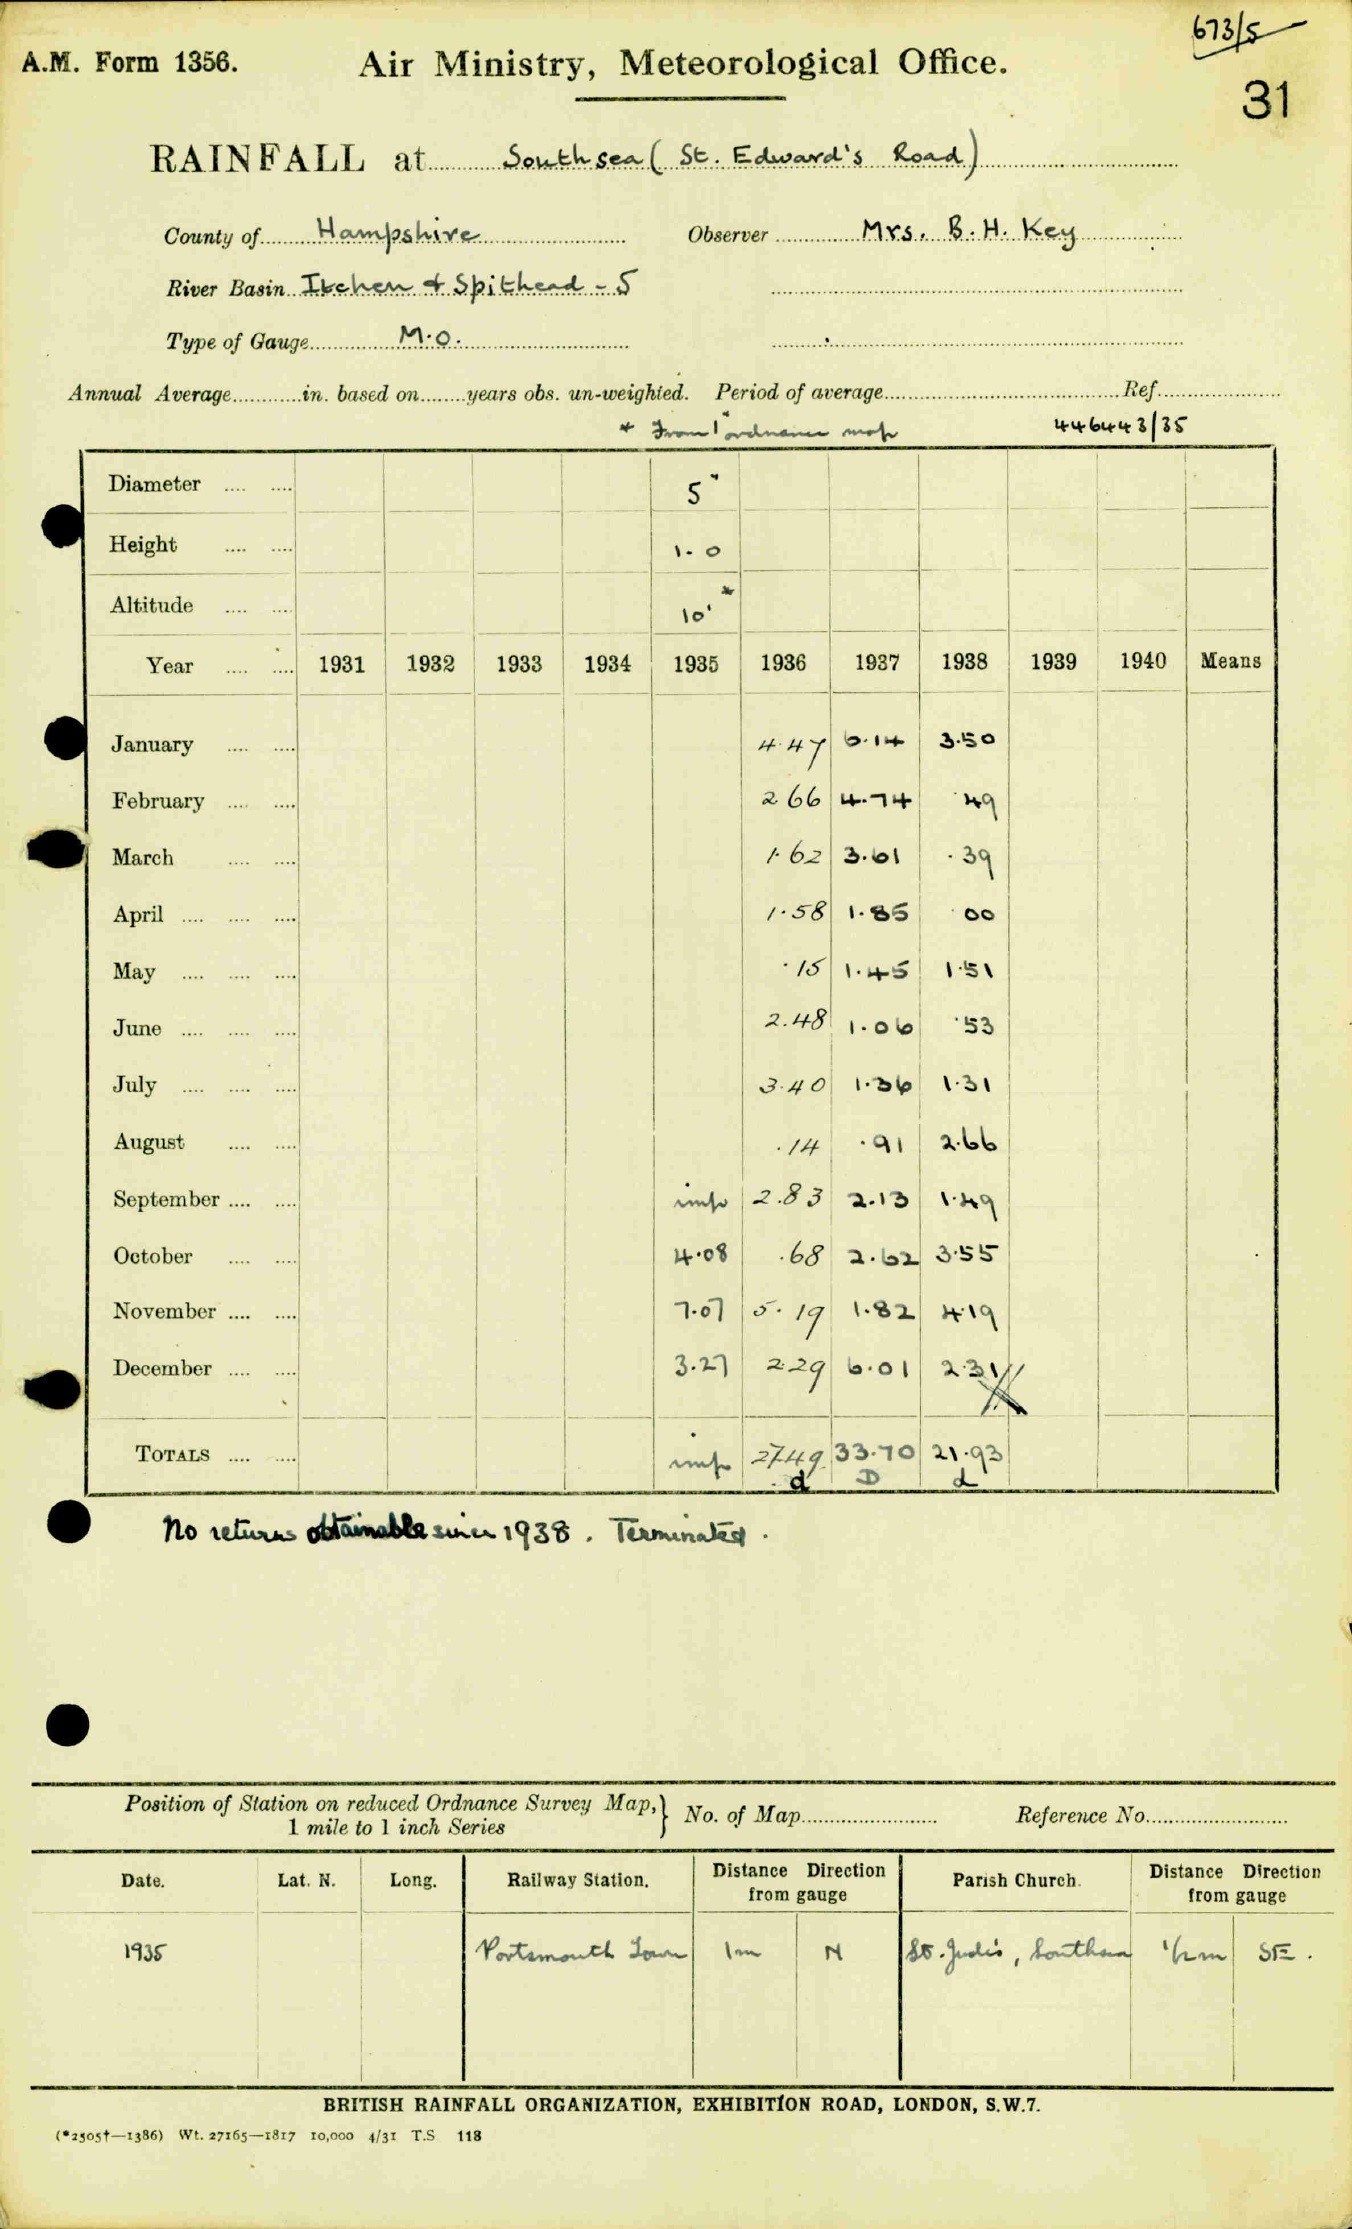 673/5
A.M. Form 1356. Air Ministry, Meteorological Office.
31
RAINFALL at Southsea (St. Edward's Road)
County of Hampshire Observer Mrs. B. H. Key
River Basin Itchen & Spithead - 5
Type of Gauge M.O.
Annual Average in. based on years obs. un-weighted. Period of average Ref.
* From 1" ordnance map 446443/35
Diameter 5"
Height 1-0
Altitude 10' *
Year 1931 1932 1933 1934 1935 1936 1937 1938 1939 1940 Means
January 4.47 6.14 3.50
February 2.66 4.74 .49
March 1.62 3.61 .39
April 1.58 1.85 .00
May .15 1.45 1.51
June 2.48 1.06 .53
July 3.40 1.36 1.31
August .14 .91 2.66
September imp 2.83 2.13 1.49
October 4.08 .68 2.62 3.55
November 7.07 5.19 1.82 4.19
December 3.27 2.29 6.01 2.31
TOTALS imp 27.49 33.70 21.93
d D d
No returns obtainable since 1938. Terminated.
Position of Station on reduced Ordnance Survey Map, } No. of Map Reference No.
1 mile to 1 inch Series
Date. Lat. N. Long. Railway Station. Distance Direction from gauge Parish Church. Distance Direction from gauge
1935 Portsmouth Town 1m N St. Jude's, Southsea 1/2 m SE.
BRITISH RAINFALL ORGANIZATION, EXHIBITION ROAD, LONDON, S.W.7.
(*2505†—1386) Wt. 27165—1817 10,000 4/31 T.S 118